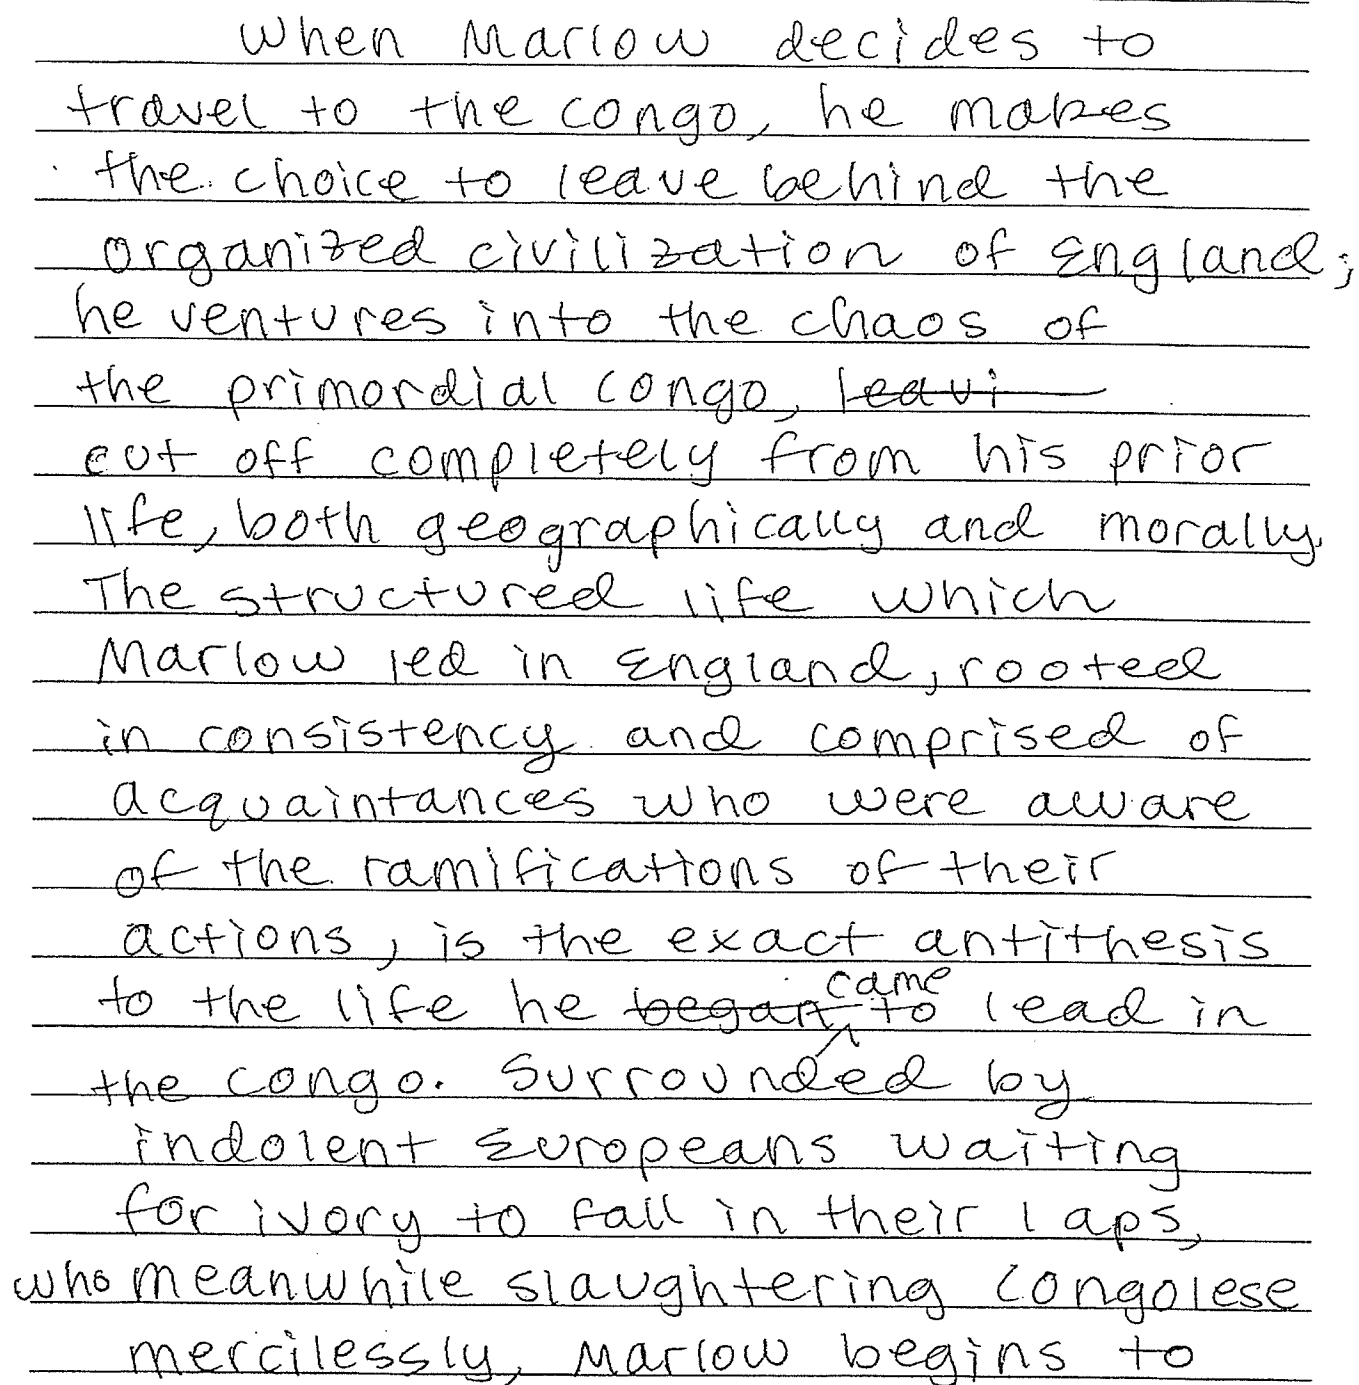 When Marlow decides to
travel to the congo, he makes
the choice to leave behind the
organized civilization of England;
he ventures into the chaos of
the primordial congo, leavi
cut off completely from his prior
life, both geographically and morally.
The structured life which
Marlow led in England, rooted
in consistency and comprised of
acquaintances who were aware
of the ramifications of their
actions, is the exact antithesis
to the life he began came to lead in
the congo. Surrounded by
indolent Europeans waiting
for ivory to fall in their laps,
who meanwhile slaughtering Congolese
mercilessly, Marlow begins to